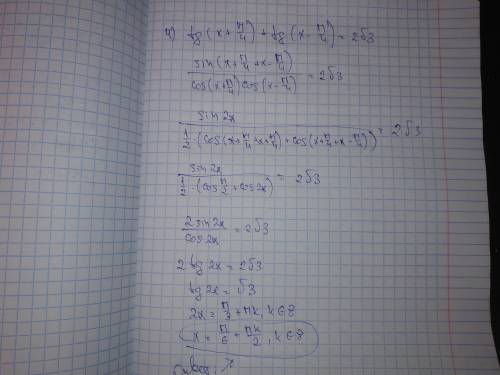 4) tg(x+π/4) + tg(x-π/4) = 2√3
sin(x+π/4+x-π/4) / cos(x+π/4)cos(x-π/4) = 2√3
sin2x / 1/2·(cos(x+π/4-x+π/4)+cos(x+π/4+x-π/4)) = 2√3
sin2x / 1/2·(cos π/2+cos2x) = 2√3
2sin2x / cos2x = 2√3
2tg2x = 2√3
tg2x = √3
2x = π/3 + πk, k∈Z
x = π/6 + πk/2, k∈Z